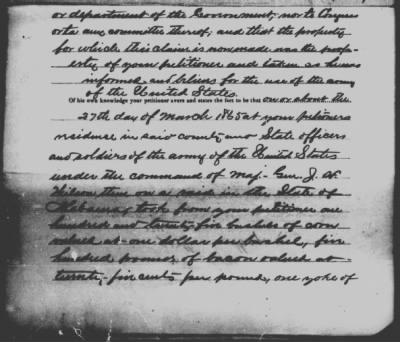 or department of the Government, nor to Congress
or to any committee thereof, and that the property
for which this claim is now made was the prop-
erty of your petitioner and taken as he was
informed and believes for the use of the army
of the United States
Of his own knowledge your petitioner avers and states the fact to be that on or about the
27th day of March 1865 at your petitioners
residence in said county and State officers
and soldiers of the army of the United States
under the command of Maj. Gen. J. H.
Wilson then on a raid in the State of
Alabama, took from your petitioner one
hundred and twenty-five bushels of corn
valued at one dollar per bushel, five
hundred pounds of bacon valued at
twenty-five cents per pound, one yoke of